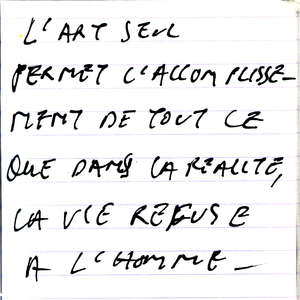 L'ART SEUL
PERMET L'ACCOMPLISSE-
MENT DE TOUT CE
QUE DANS LA REALITE,
LA VIE REFUSE
A L'HOMME_